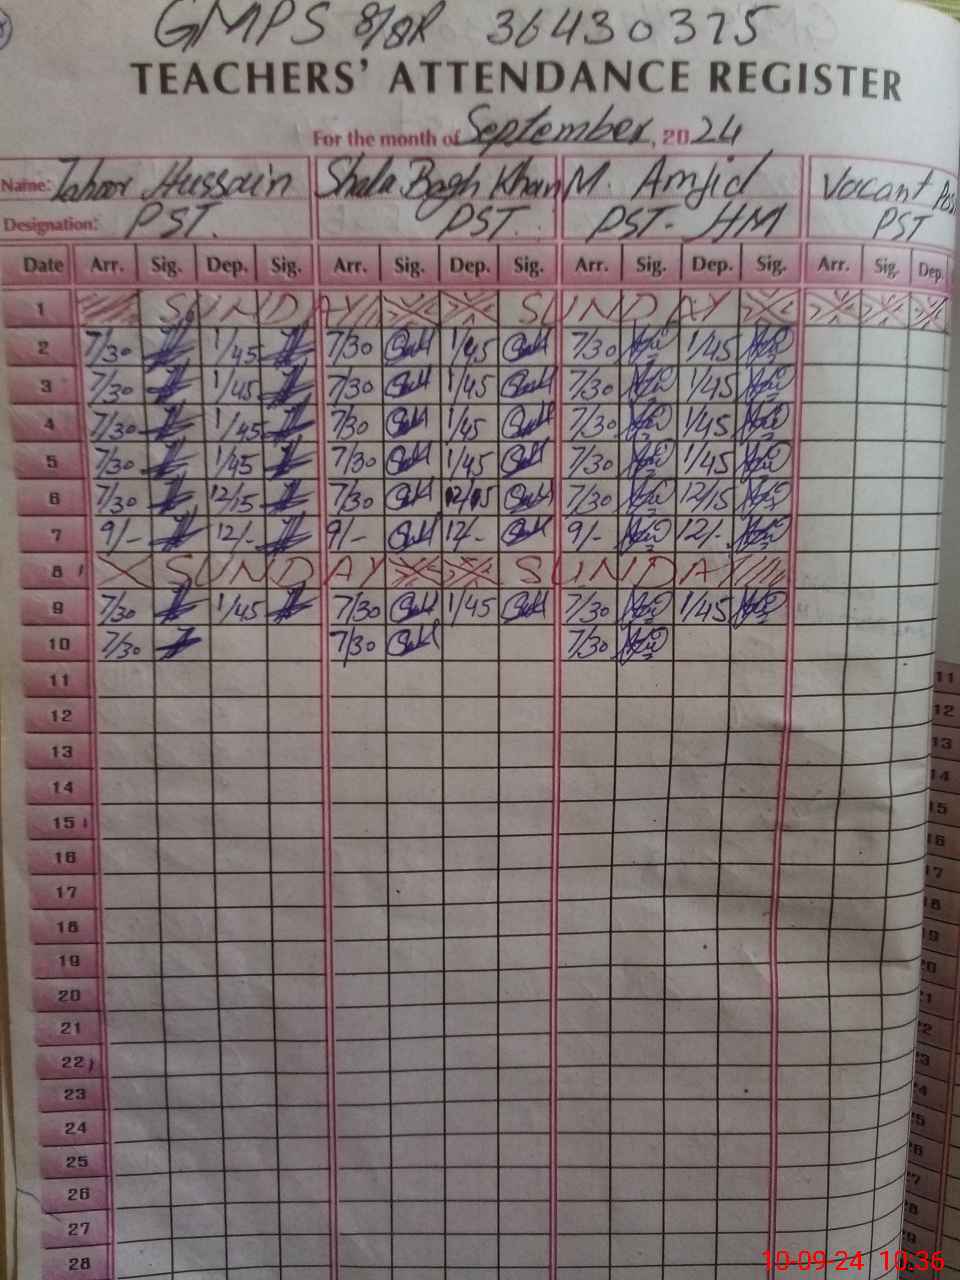 GMPS 8/8R 36430375
TEACHERS' ATTENDANCE REGISTER
For the month of September, 2024
Name: Zahoor Hussain Shala Bagh Khan M. Amjid Vacant Pos
Designation: PST. PST. PST- HM PST
Date Arr. Sig. Dep. Sig. Arr. Sig. Dep. Sig. Arr. Sig. Dep. Sig. Arr. Sig. Dep.
1 SUNDAY SUNDAY
2 7/30 1/45 7/30 1/45 7/30 1/45
3 7/30 1/45 7/30 1/45 7/30 1/45
4 7/30 1/45 7/30 1/45 7/30 1/45
5 7/30 1/45 7/30 1/45 7/30 1/45
6 7/30 12/15 7/30 12/15 7/30 12/15
7 9/- 12/- 9/- 12/- 9/- 12/-
8 SUNDAY SUNDAY
9 7/30 1/45 7/30 1/45 7/30 1/45
10 7/30 7/30 7/30
11 11
12 12
13 13
14 14
15 15
16 16
17 17
18 18
19 19
20
21
22
23
24
25
26
27
28
10-09-24 10:36